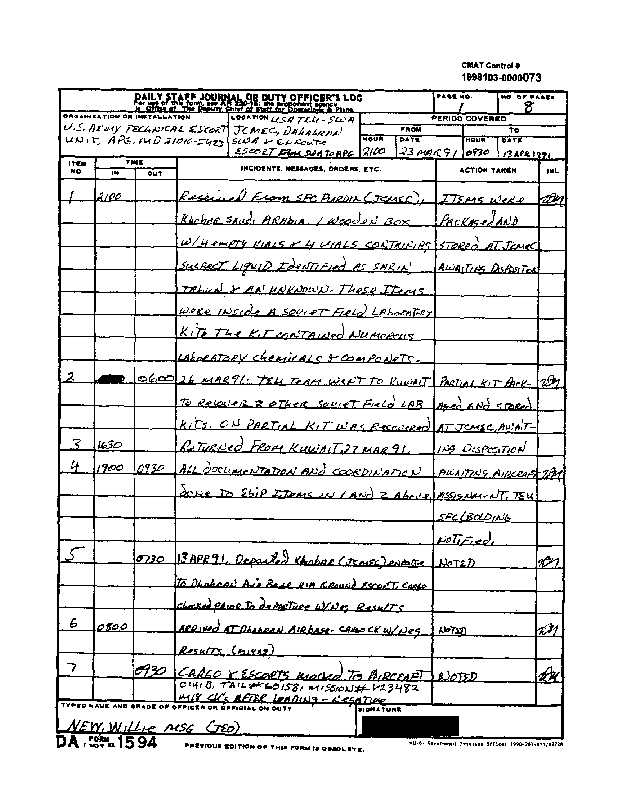 CMAT Control #
1998103-0000073
DAILY STAFF JOURNAL OR DUTY OFFICER'S LOG
For use of this form, see AR 220-15; the proponent agency
is Office of The Deputy Chief of Staff for Operations & Plans
PAGE NO. 1
NO. OF PAGES 8
ORGANIZATION OR INSTALLATION
U.S. ARMY TECHNICAL ESCORT
UNIT, APG, MD 21010-5423
LOCATION USATEU-SWA
JCMEC, DAHAHRAN
SWA & ENROUTE
ESCORT SWA TO APG
PERIOD COVERED
FROM TO
HOUR DATE HOUR DATE
2100 23 MAR 91 0930 13 APR 1991
ITEM NO TIME IN OUT INCIDENTS, MESSAGES, ORDERS, ETC. ACTION TAKEN INL
1 2100 Received From SFC (JCMEC), ITEMS WERE
Khobar Saudi Arabia 1 Wooden Box PACKAGED AND
W/4 empty vials & 4 vials containing STORED AT JCMEC
SUSPECT LIQUID IDENTIFIED AS SARIN AWAITING DISPOSITION
TABUN & AN UNKNOWN. THESE ITEMS
WERE INSIDE A SOVIET FIELD LABORATORY
KIT. THE KIT CONTAINED NUMEROUS
LABORATORY CHEMICALS & COMPONETS.
2 0600 26 MAR 91. TEU TEAM WENT TO KUWAIT PARTIAL KIT PACK-
TO RECOVER 2 OTHER SOVIET FIELD LAB AGED AND STORED
KITS. ON PARTIAL KIT WAS RECOVERED AT JCMEC, AWAIT-
3 1630 RETURNED FROM KUWAIT, 27 MAR 91 ING DISPOSITION
4 1900 0930 ALL DOCUMENTATION AND COORDINATION AWAITING AIRCRAFT
DONE TO SHIP ITEMS IN 1 AND 2 Above. ASSIGNMENT, TEU
SFC/BOLDING
NOTIFIED.
5 0730 13 APR 91. Departed Khobar (JCMEC) enroute NOTED
To Dhahran Air Base via ground escort, cargo
checked prior to departure w/Neg Results
6 0800 ARRIVED AT Dhahran AIRBASE- CARGO CK W/Neg NOTED
Results.
7 0930 CARGO & ESCORTS MOVED TO AIRCRAFT NOTED
C141B, TAIL# 60158, MISSION#
M18 CK's AFTER LOADING - NEGATIVE
TYPED NAME AND GRADE OF OFFICER OR OFFICIAL ON DUTY
NEW, Willie MSG
SIGNATURE
DA FORM 1 NOV 62 1594
PREVIOUS EDITION OF THIS FORM IS OBSOLETE.